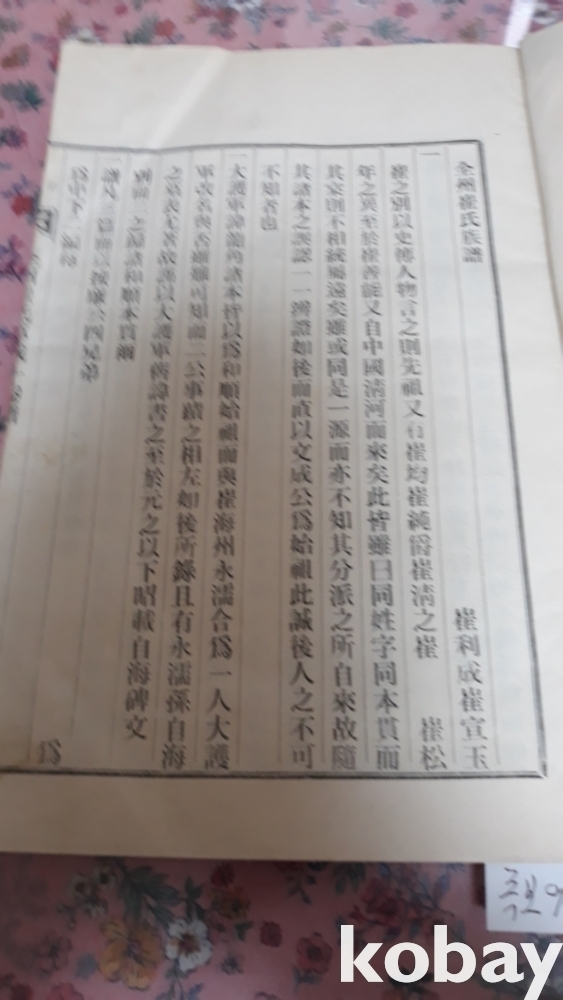 全州崔氏族譜
崔利成崔宣玉
一
崔之別以史傳人物言之則先祖又有崔均崔純爵崔淸之崔 崔松
年之異至於崔善能又自中國淸河而來矣此皆雖曰同姓字同本貫而
其實則不相統屬遠矣雖或同是一源而亦不知其分派之所自來故隨
其諸本之誤認一一辨證如後而直以文成公爲始祖此誠後人之不可
不知者也
一大護軍諱龍角諸本皆以爲和順始祖而與崔海州永濡合爲一人大護
軍改名與否雖難可知而二公事蹟之相左如後所錄且有永濡孫自海
之墓表尤著故譜以大護軍舊諱書之至於元之以下昭載自海碑文
別冊 之歸諸和順本貫爾
一譜凡 篇而 按廉公四兄弟
爲中下 編
족보
kobay